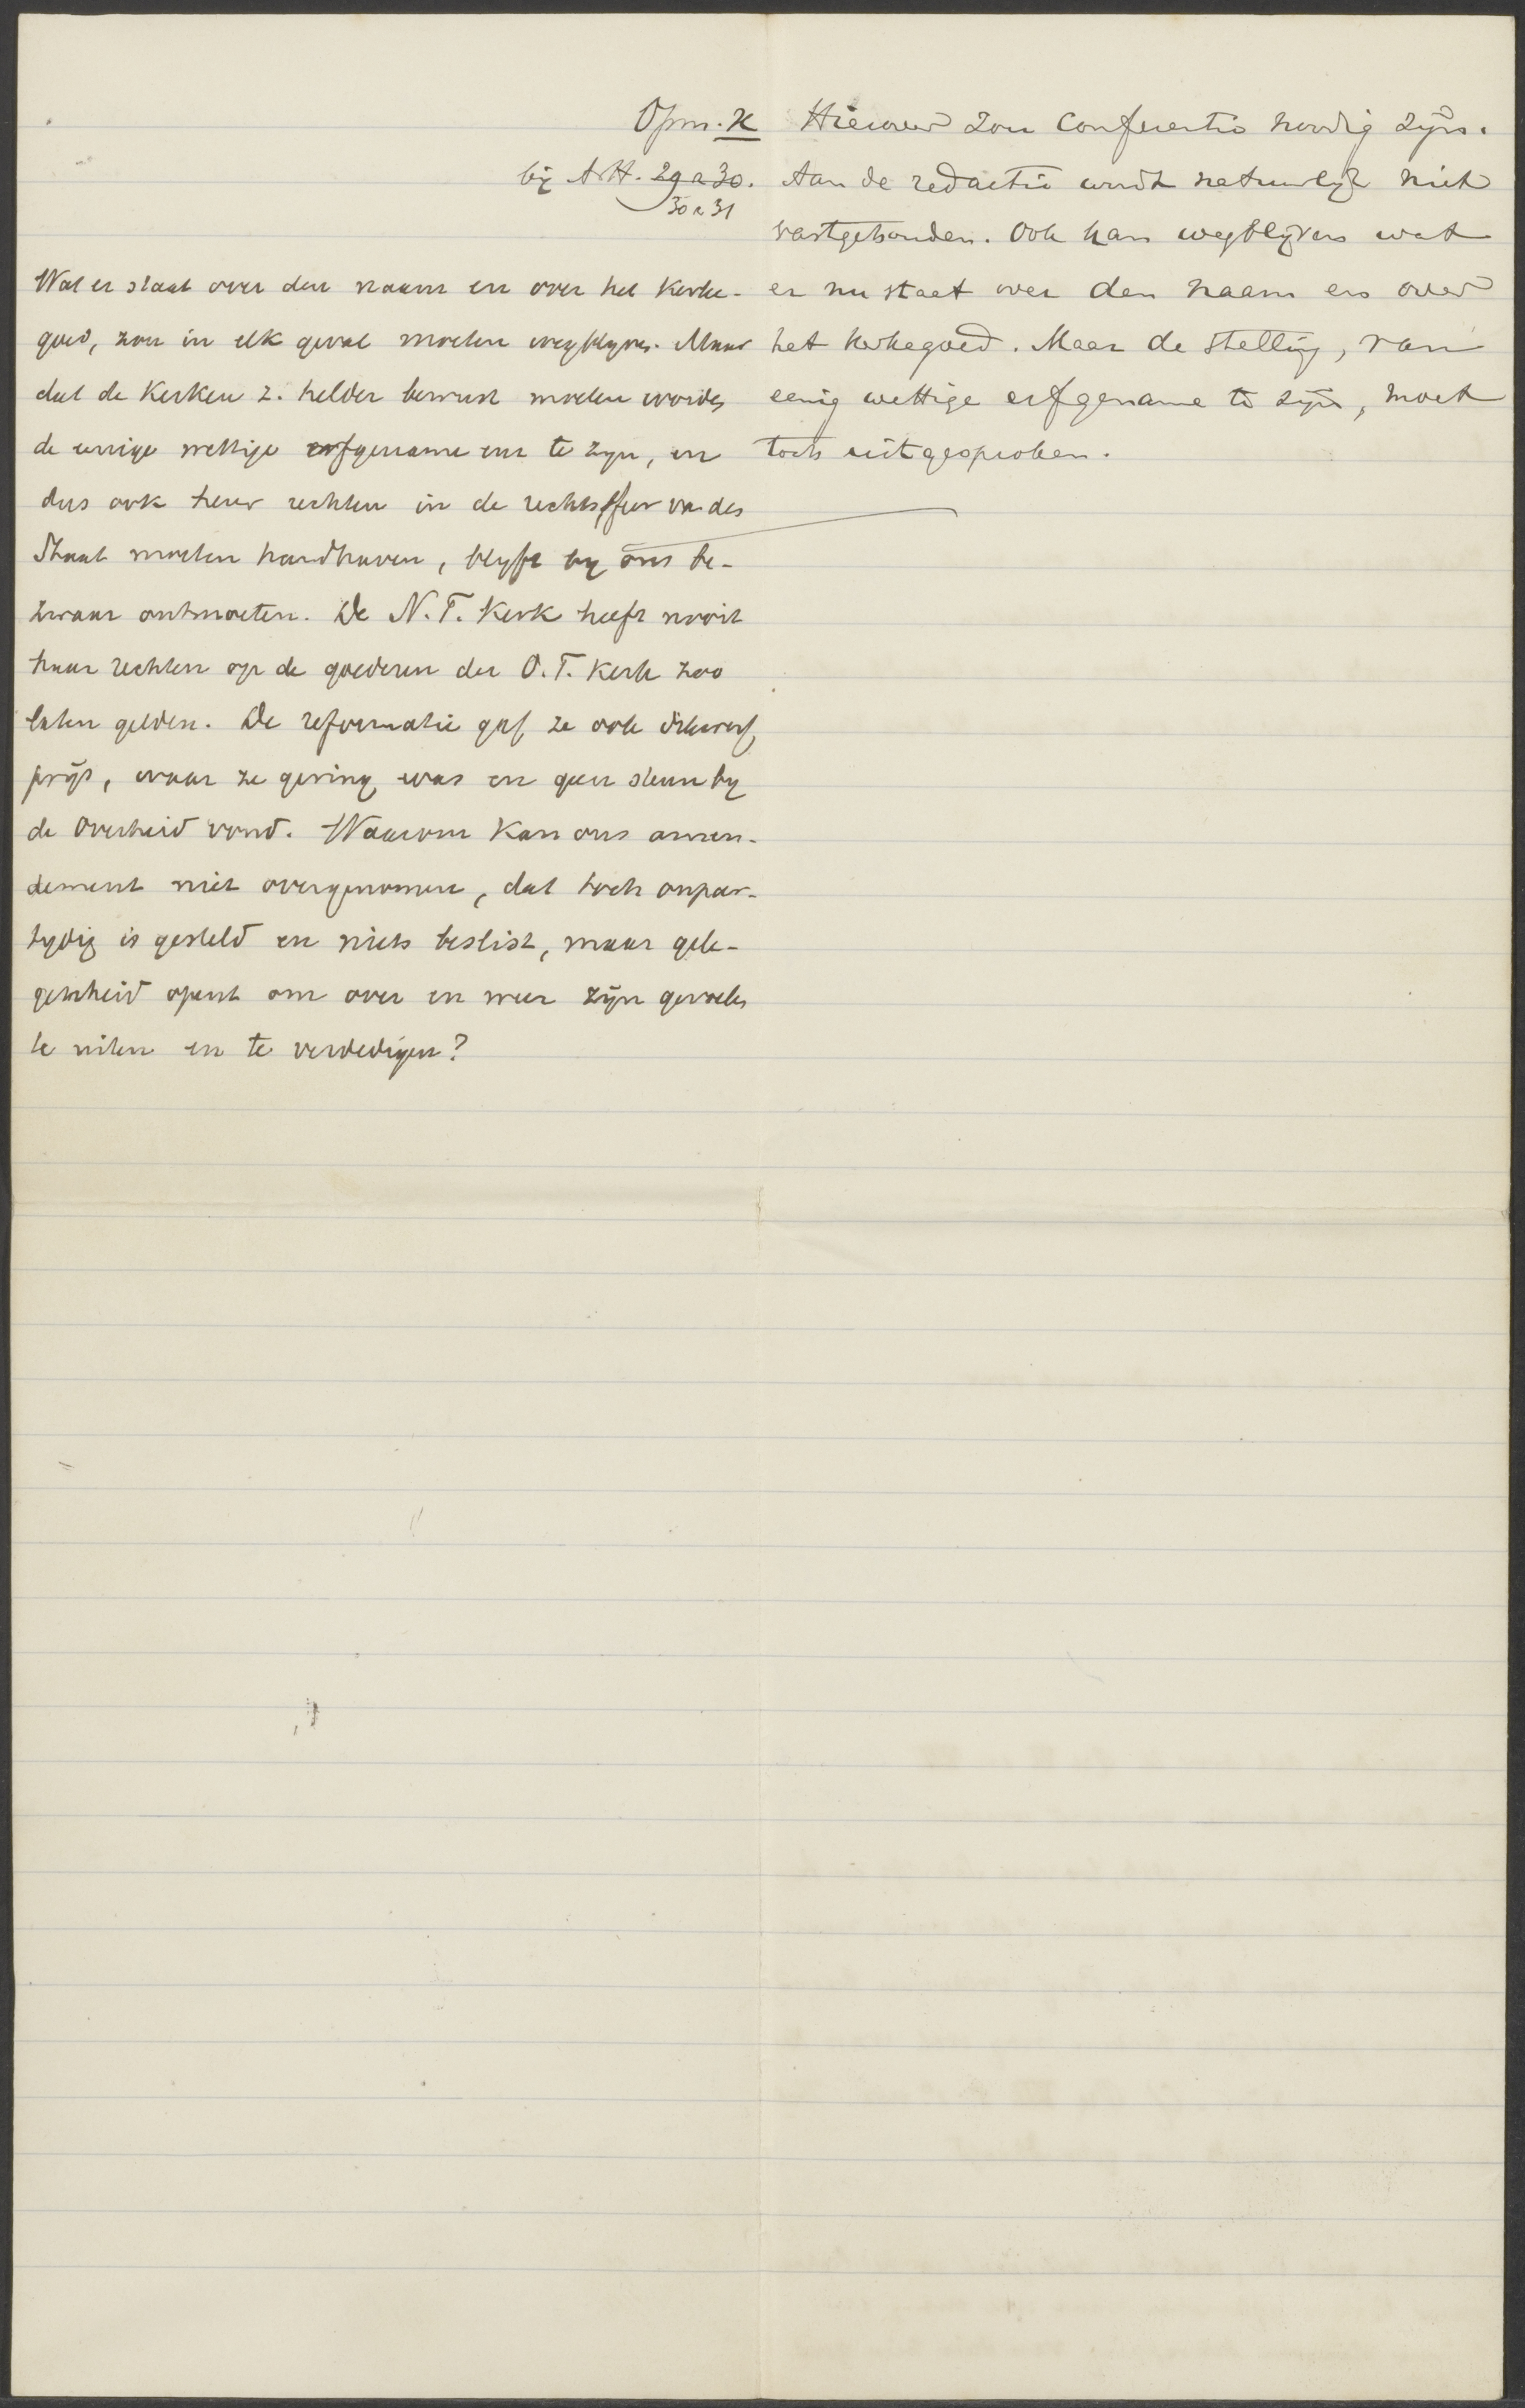 Opm. K
bij Art. 29 a 30.
30 a 31
Wat er staat over den naam en over het kerke-
goed, zou in elk geval moeten wegblijven. Maar
dat de Kerken z. helder bewust moeten worden
de eenige wettige erfgename en te zijn, en
dus ook hun rechten in de rechtssfeer van den
Staat moeten handhaven, blijft bij ons be-
zwaar ontmoeten. De N. T. Kerk heeft nooit
haar rechten op de goederen der O. T. Kerk zoo
laten gelden. De reformatie gaf ze ook dikwerf
prijs, waar ze gering was en geen steun bij
de Overheid vond. Waarom kan ons amen-
dement niet overgenomen, dat toch onpar-
tijdig is gesteld en niets beslist, maar gele-
genheid opent om over en weer zijn gevoelen
te uiten en te verdedigen?
Hierover zou Conferentie noodig zijn.
Aan de redactie wordt natuurlijk niet
vastgehouden. Ook kan wegblijven wat
er nu staat over den naam en over
het kerkegoed. Maar de stelling, van
eenig wettige erfgename te zijn, moet
toch uitgesproken.